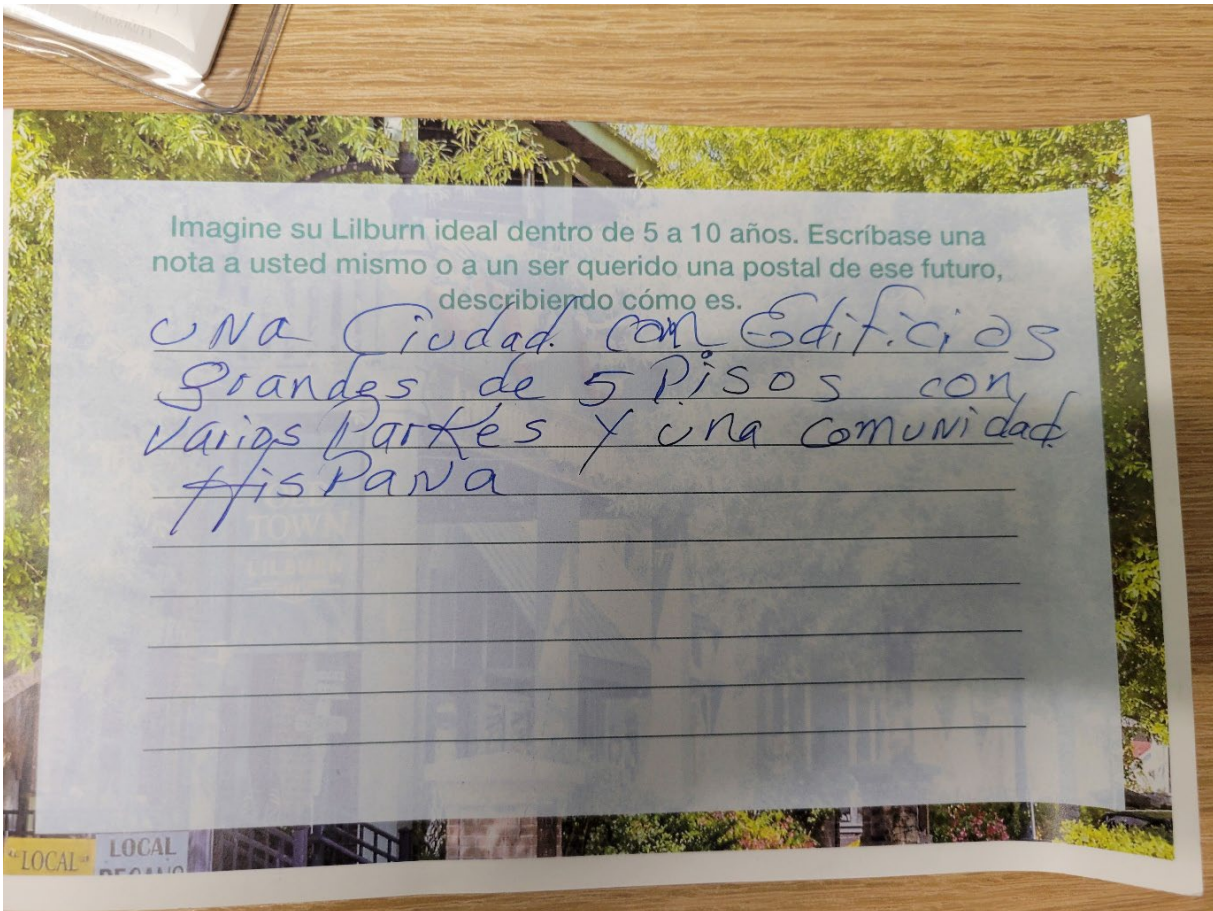 Imagine su Lilburn ideal dentro de 5 a 10 años. Escríbase una
nota a usted mismo o a un ser querido una postal de ese futuro,
describiendo cómo es.
UNa Ciudad con Edificios
grandes de 5 Pisos con
varios Parkes y una comunidad
HisPaNa
TOWN
LILBURN
"LOCAL"
LOCAL